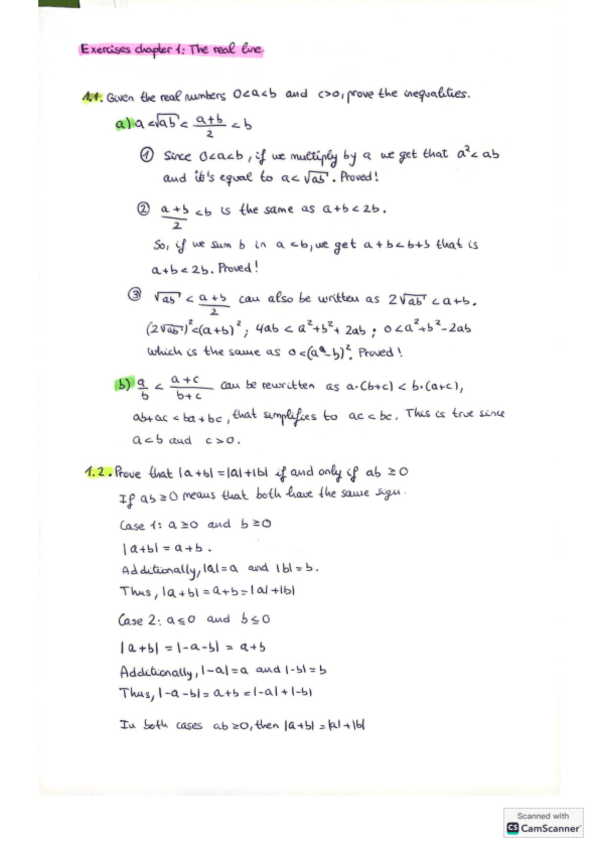 Exercises chapter 1: The real line.
1.1. Given the real numbers 0<a<b and c>0, prove the inequalities.
a) a<√ab < (a+b)/2 < b
① Since 0<a<b, if we multiply by a we get that a²<ab
and it's equal to a<√ab. Proved!
② (a+b)/2 <b is the same as a+b<2b.
So, if we sum b in a<b, we get a+b<b+b that is
a+b<2b. Proved!
③ √ab < (a+b)/2 can also be written as 2√ab <a+b.
(2√ab)²<(a+b)²; 4ab < a²+b²+2ab; 0<a²+b²-2ab
which is the same as 0<(a-b)². Proved!
b) a/b < (a+c)/(b+c) can be rewritten as a·(b+c) < b·(a+c),
ab+ac <ba+bc, that simplifies to ac<bc. This is true since
a<b and c>0.
1.2. Prove that |a+b|=|a|+|b| if and only if ab ≥0
If ab≥0 means that both have the same sign.
Case 1: a≥0 and b≥0
|a+b| = a+b.
Additionally, |a|=a and |b|=b.
Thus, |a+b|=a+b=|a|+|b|
Case 2: a≤0 and b≤0
|a+b| = |-a-b| = a+b
Additionally, |-a|=a and |-b|=b
Thus, |-a-b|=a+b=|-a|+|-b|
In both cases ab≥0, then |a+b|=|a|+|b|
Scanned with
CS CamScanner